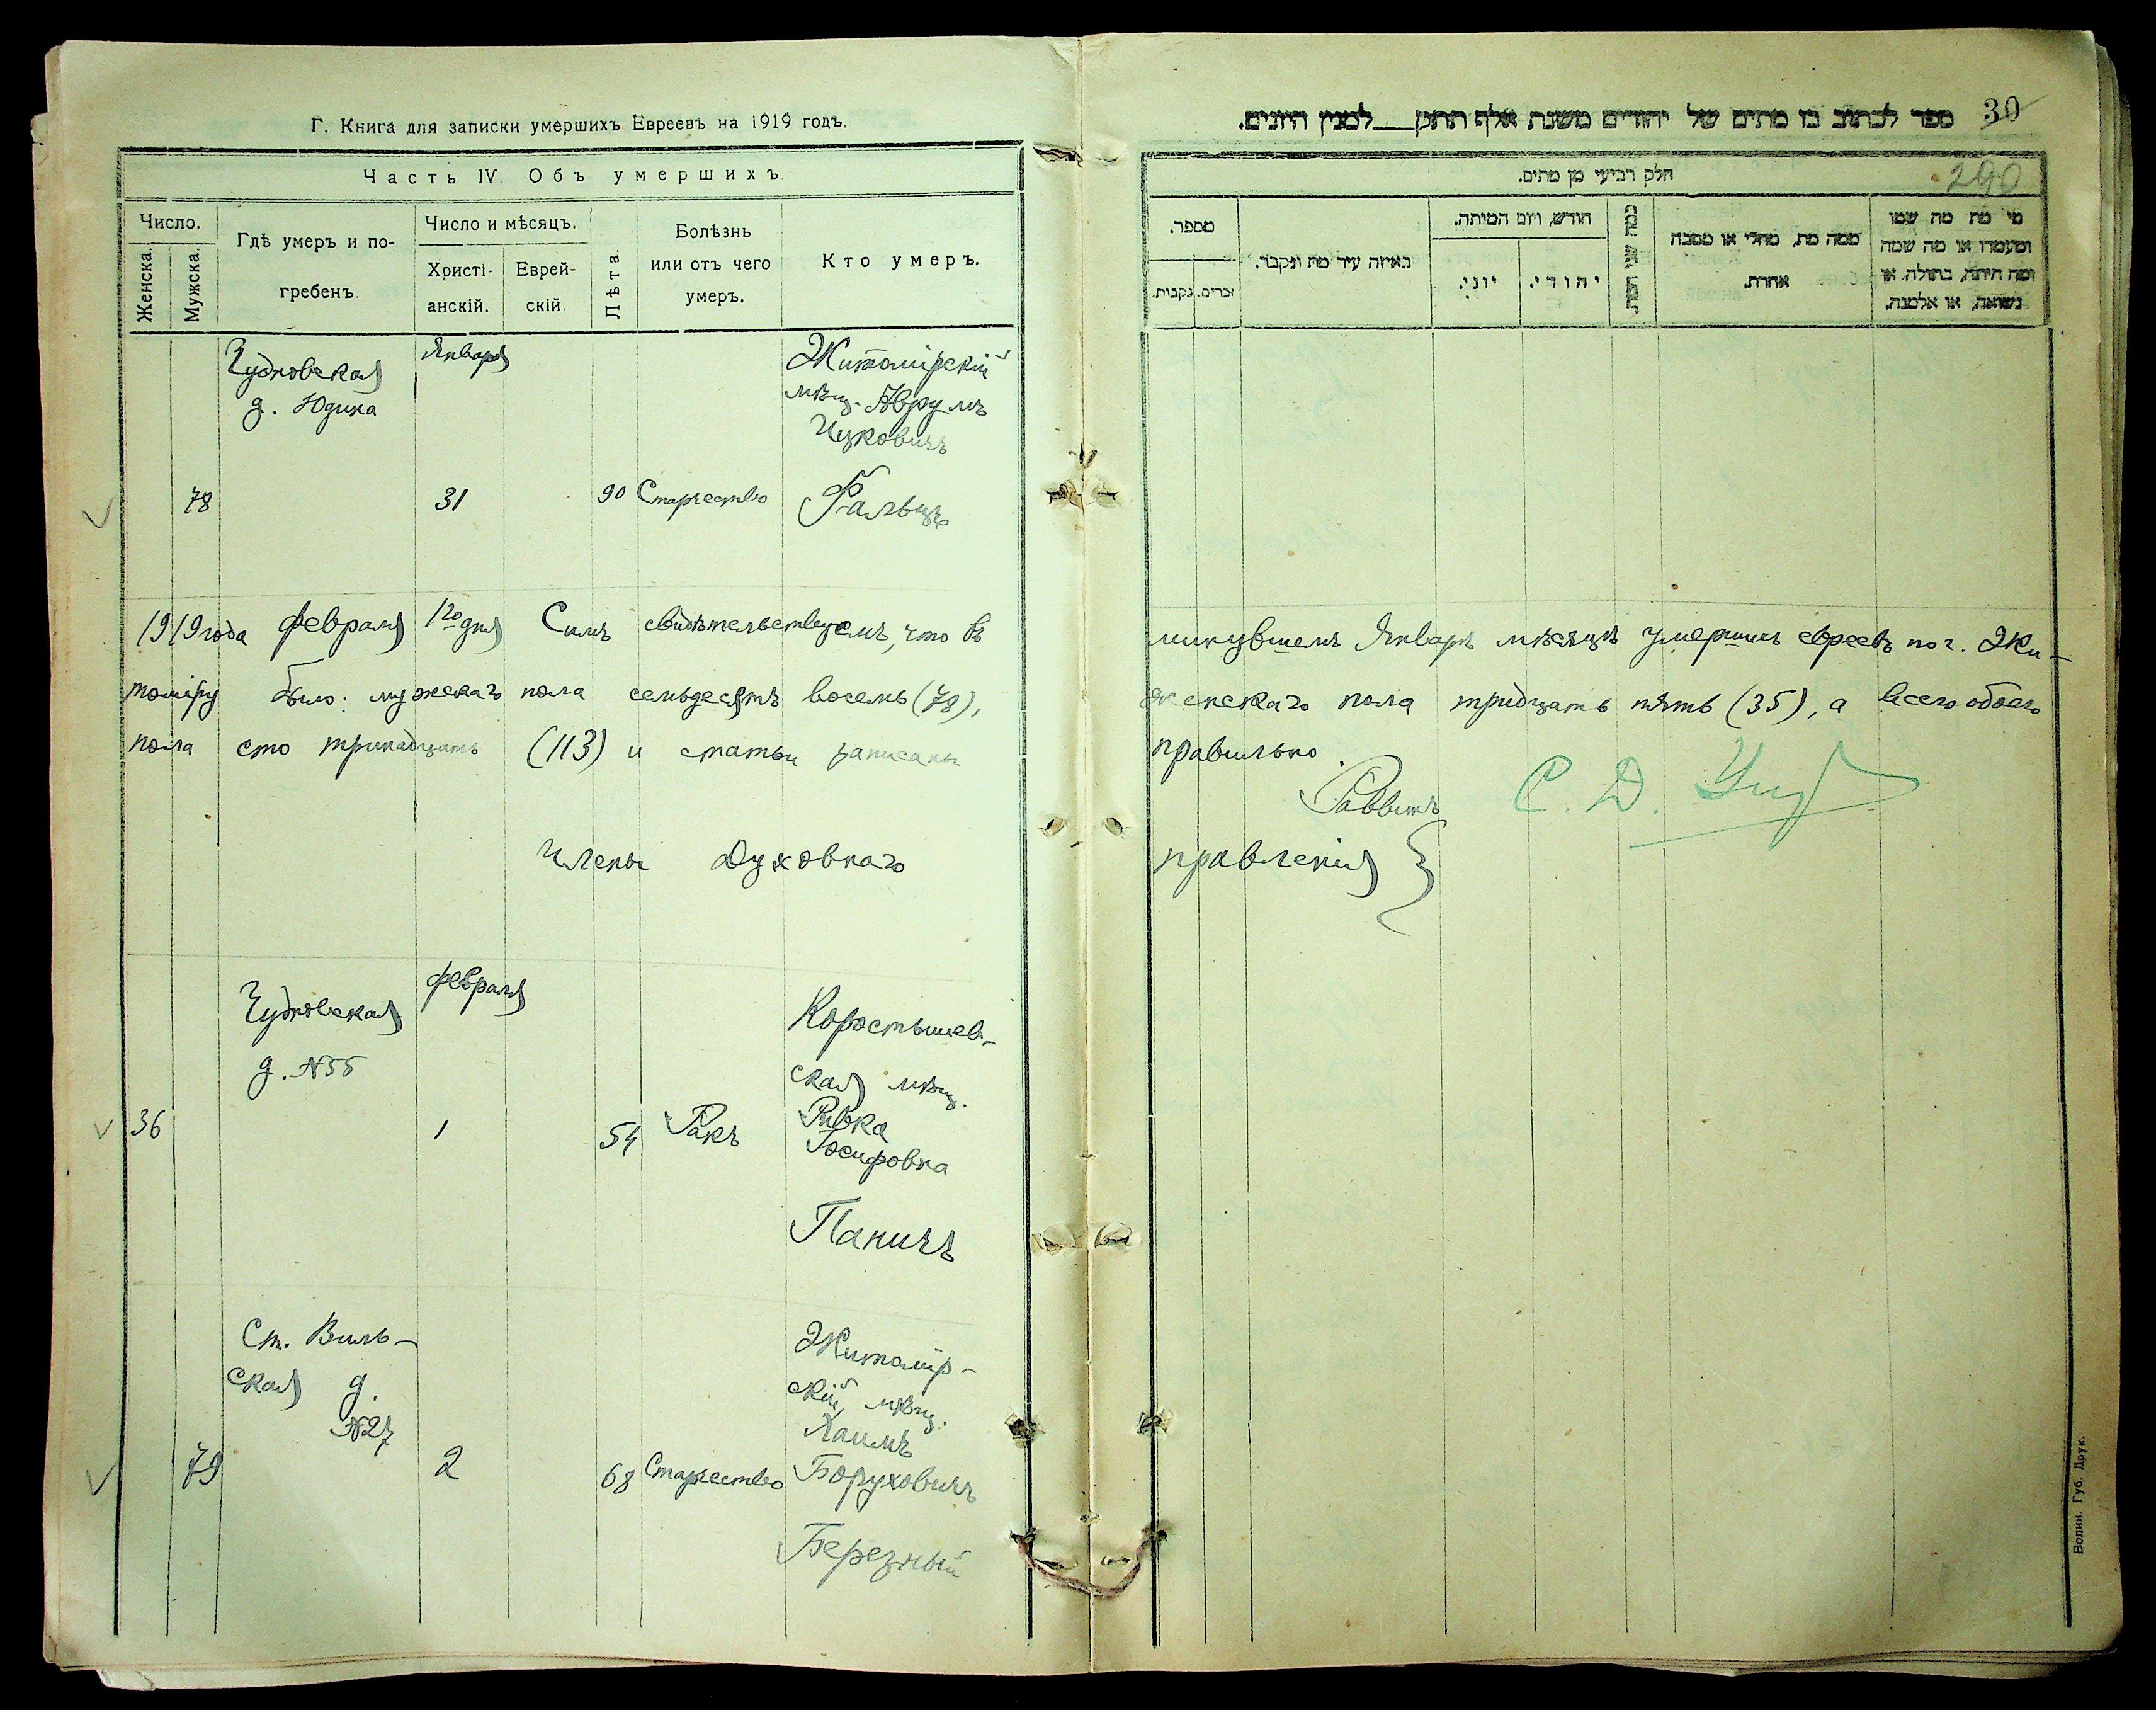 Г. Книга для записки умершихъ Евреевъ на 1919 годъ.
Часть IV. Объ умершихъ
Число.
Женска.
Мужска.
Гдѣ умеръ и по-
гребенъ.
Число и мѣсяцъ.
Христі-
анскій.
Еврей-
скій.
Лѣта.
Болѣзнь
или отъ чего
умеръ.
Кто умеръ.
Чудновская
д. Юдина
Января
Житомірскій
мѣщ. Аврумъ
Ицковичъ
78
31
90
Старчество
Фальцъ
1919 года февраля 1го дня Симъ свидѣтельствуемъ, что въ
томіру было: мужскаго пола семьдесятъ восемь (78),
пола сто тринадцать (113) и статьи записаны
Члены Духовнаго
Чудновская
д. №55
февраля
Коростышев-
ская мѣщ.
36
1
54
Ракъ
Ривка
Іосифовна
Паничъ
Ст. Виль-
ская д.
№27
Житомір-
скій мѣщ.
Хаимъ
79
2
68
Старчество
Боруховичъ
Березный
ספר לכתוב בו מתים של יהודים משנת אלף תתקן למנין היונים.
30
290
חלק רביעי מן מתים.
מספר.
נקבות.
זכרים.
באיזה עיר מת ונקבר.
חודש, ויום המיתה.
יוני.
יהודי.
כמה שני המת.
ממה מת, מחלי או מסבה
אחרת.
מי מת מה שמו
ומעמדו או מה שמה
ומה היתה, בתולה, או
נשואה, או אלמנה.
минувшемъ Январѣ мѣсяцѣ умершихъ евреевъ по г. Жи-
женскаго пола тридцать пять (35), а всего обоего
правильно.
Раввинъ С. Д.
правленія
Волин. Губ. Друк.